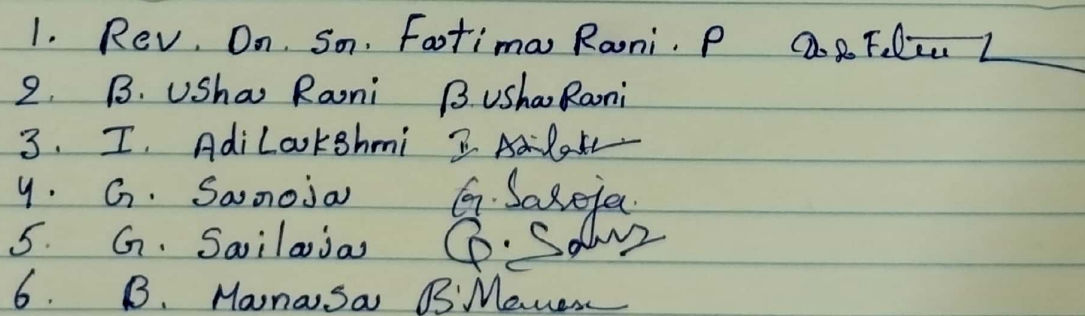 1. Rev. Dr. Sr. Fatima Rani. P
2. B. Usha Rani B. Usha Rani
3. I. Adi Lakshmi I.
4. G. Saroja G. Saroja.
5. G. Sailaja G.
6. B. Manasa B. Manasa